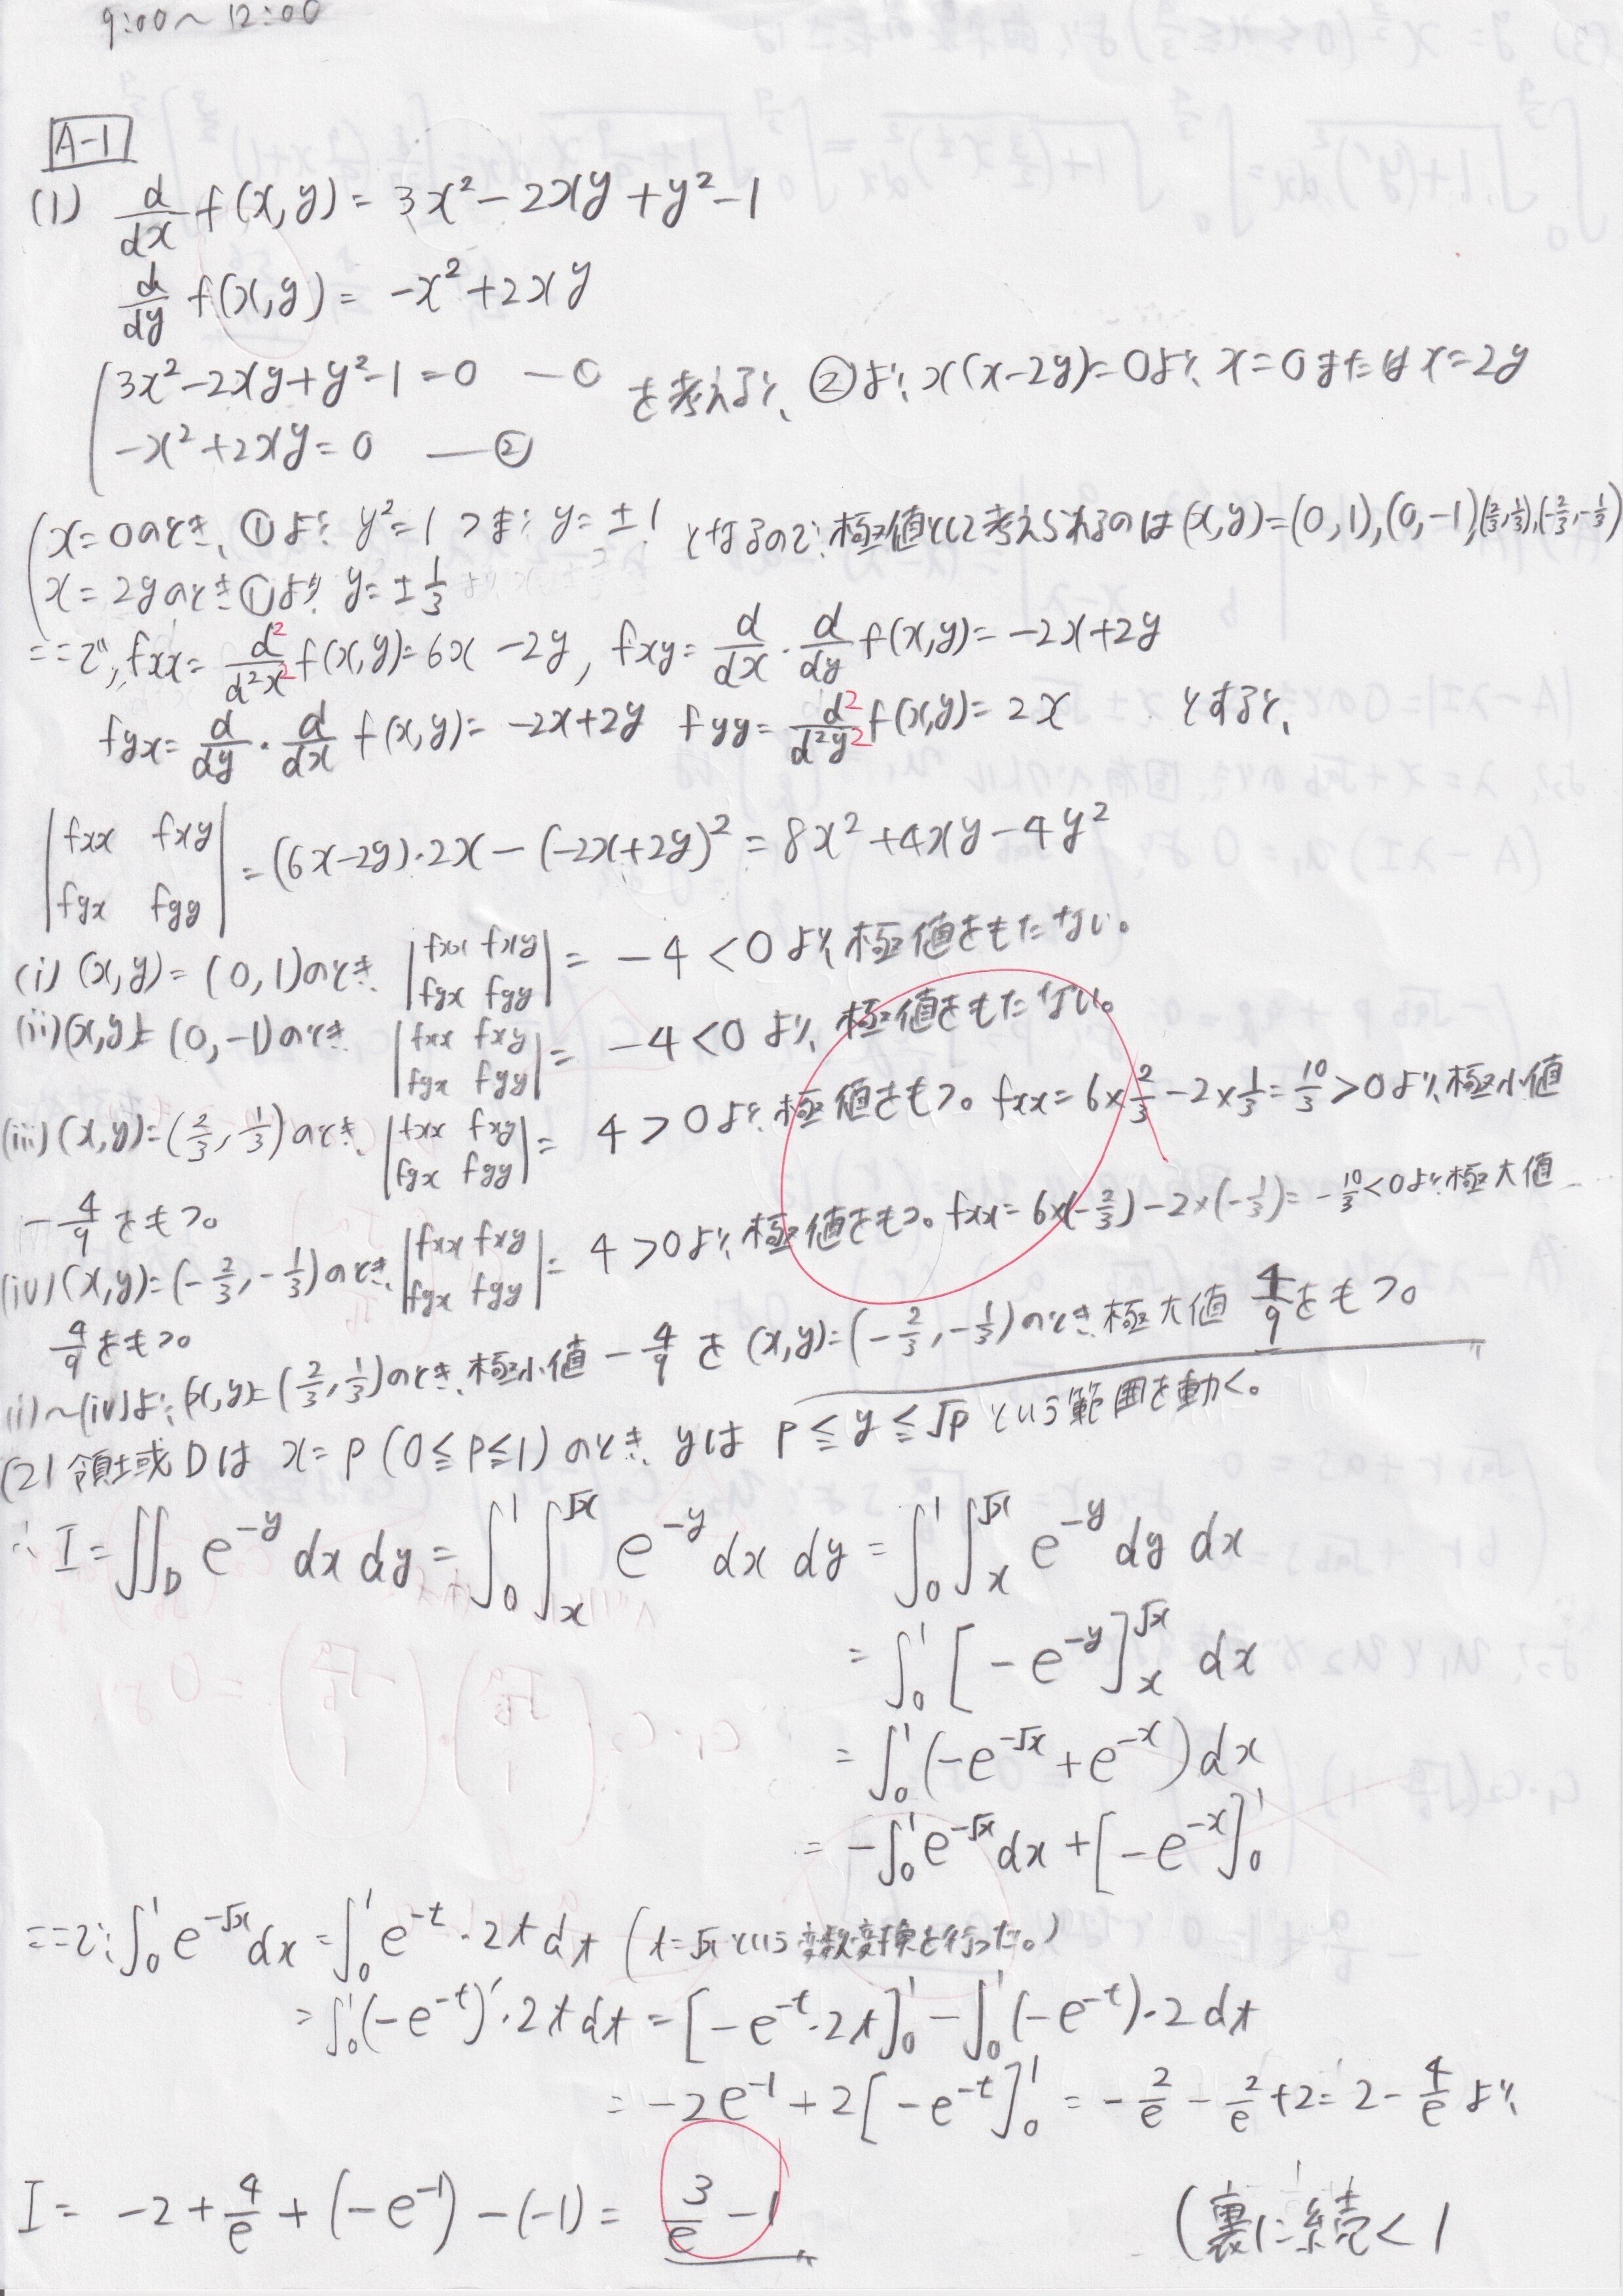 9:00～12:00
A-1
(1) d/dx f(x,y) = 3x² - 2xy + y² - 1
d/dy f(x,y) = -x² + 2xy
3x² - 2xy + y² - 1 = 0 —① を考えると、②より、x(x-2y)=0より、x=0またはx=2y
-x² + 2xy = 0 —②
x=0のとき、①より y²=1 つまり y=±1 となるので、極値として考えられるのは(x,y)=(0,1),(0,-1),(2/3,1/3),(-2/3,-1/3)
x=2yのとき①より y=±1/3
ここで、fxx = d²/d²x² f(x,y) = 6x - 2y, fxy = d/dx · d/dy f(x,y) = -2x+2y
fyx = d/dy · d/dx f(x,y) = -2x+2y fyy = d²/d²y² f(x,y) = 2x とすると、
|fxx fxy|
|fyx fyy| = (6x-2y)·2x - (-2x+2y)² = 8x² + 4xy - 4y²
(i) (x,y) = (0,1)のとき、|fxx fxy fyx fyy| = -4 < 0 より、極値をもたない。
(ii) (x,y)=(0,-1)のとき |fxx fxy fyx fyy| = -4<0 より、極値をもたない。
(iii) (x,y)=(2/3,1/3)のとき、|fxx fxy fyx fyy| = 4>0より、極値をもつ。fxx=6×2/3-2×1/3=10/3>0より、極小値
-4/9をもつ。
(iv) (x,y)=(-2/3,-1/3)のとき、|fxx fxy fyx fyy| = 4>0より、極値をもつ。fxx=6×(-2/3)-2×(-1/3)=-10/3<0より、極大値
4/9をもつ。
(i)～(iv)より、(x,y)=(2/3,1/3)のとき、極小値 -4/9 を (x,y)=(-2/3,-1/3)のとき、極大値 4/9をもつ。
(2) 領域Dは x=p (0≦p≦1) のとき、yは p≦y≦√p という範囲を動く。
∴ I = ∬_D e^{-y} dx dy = ∫_0^1 ∫_x^{√x} e^{-y} dx dy = ∫_0^1 ∫_x^{√x} e^{-y} dy dx
= ∫_0^1 [-e^{-y}]_x^{√x} dx
= ∫_0^1 (-e^{-√x} + e^{-x}) dx
= -∫_0^1 e^{-√x} dx + [-e^{-x}]_0^1
ここで、∫_0^1 e^{-√x} dx = ∫_0^1 e^{-t}·2t dt (t=√xという変数変換を行った。)
= ∫_0^1 (-e^{-t})'·2t dt = [-e^{-t}·2t]_0^1 - ∫_0^1 (-e^{-t})·2 dt
= -2e^{-1} + 2[-e^{-t}]_0^1 = -2/e - 2/e + 2 = 2 - 4/e より、
I = -2 + 4/e + (-e^{-1}) - (-1) = 3/e - 1
(裏に続く)